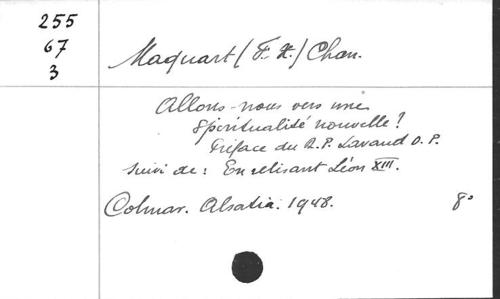 255
67
3
Maquart (F. X.) Chan.
Allons-nous vers une
spiritualité nouvelle?
Préface du R.P. Lavaud O.P.
suivi de: En relisant Léon XIII.
Colmar. Alsatia. 1948. 8°